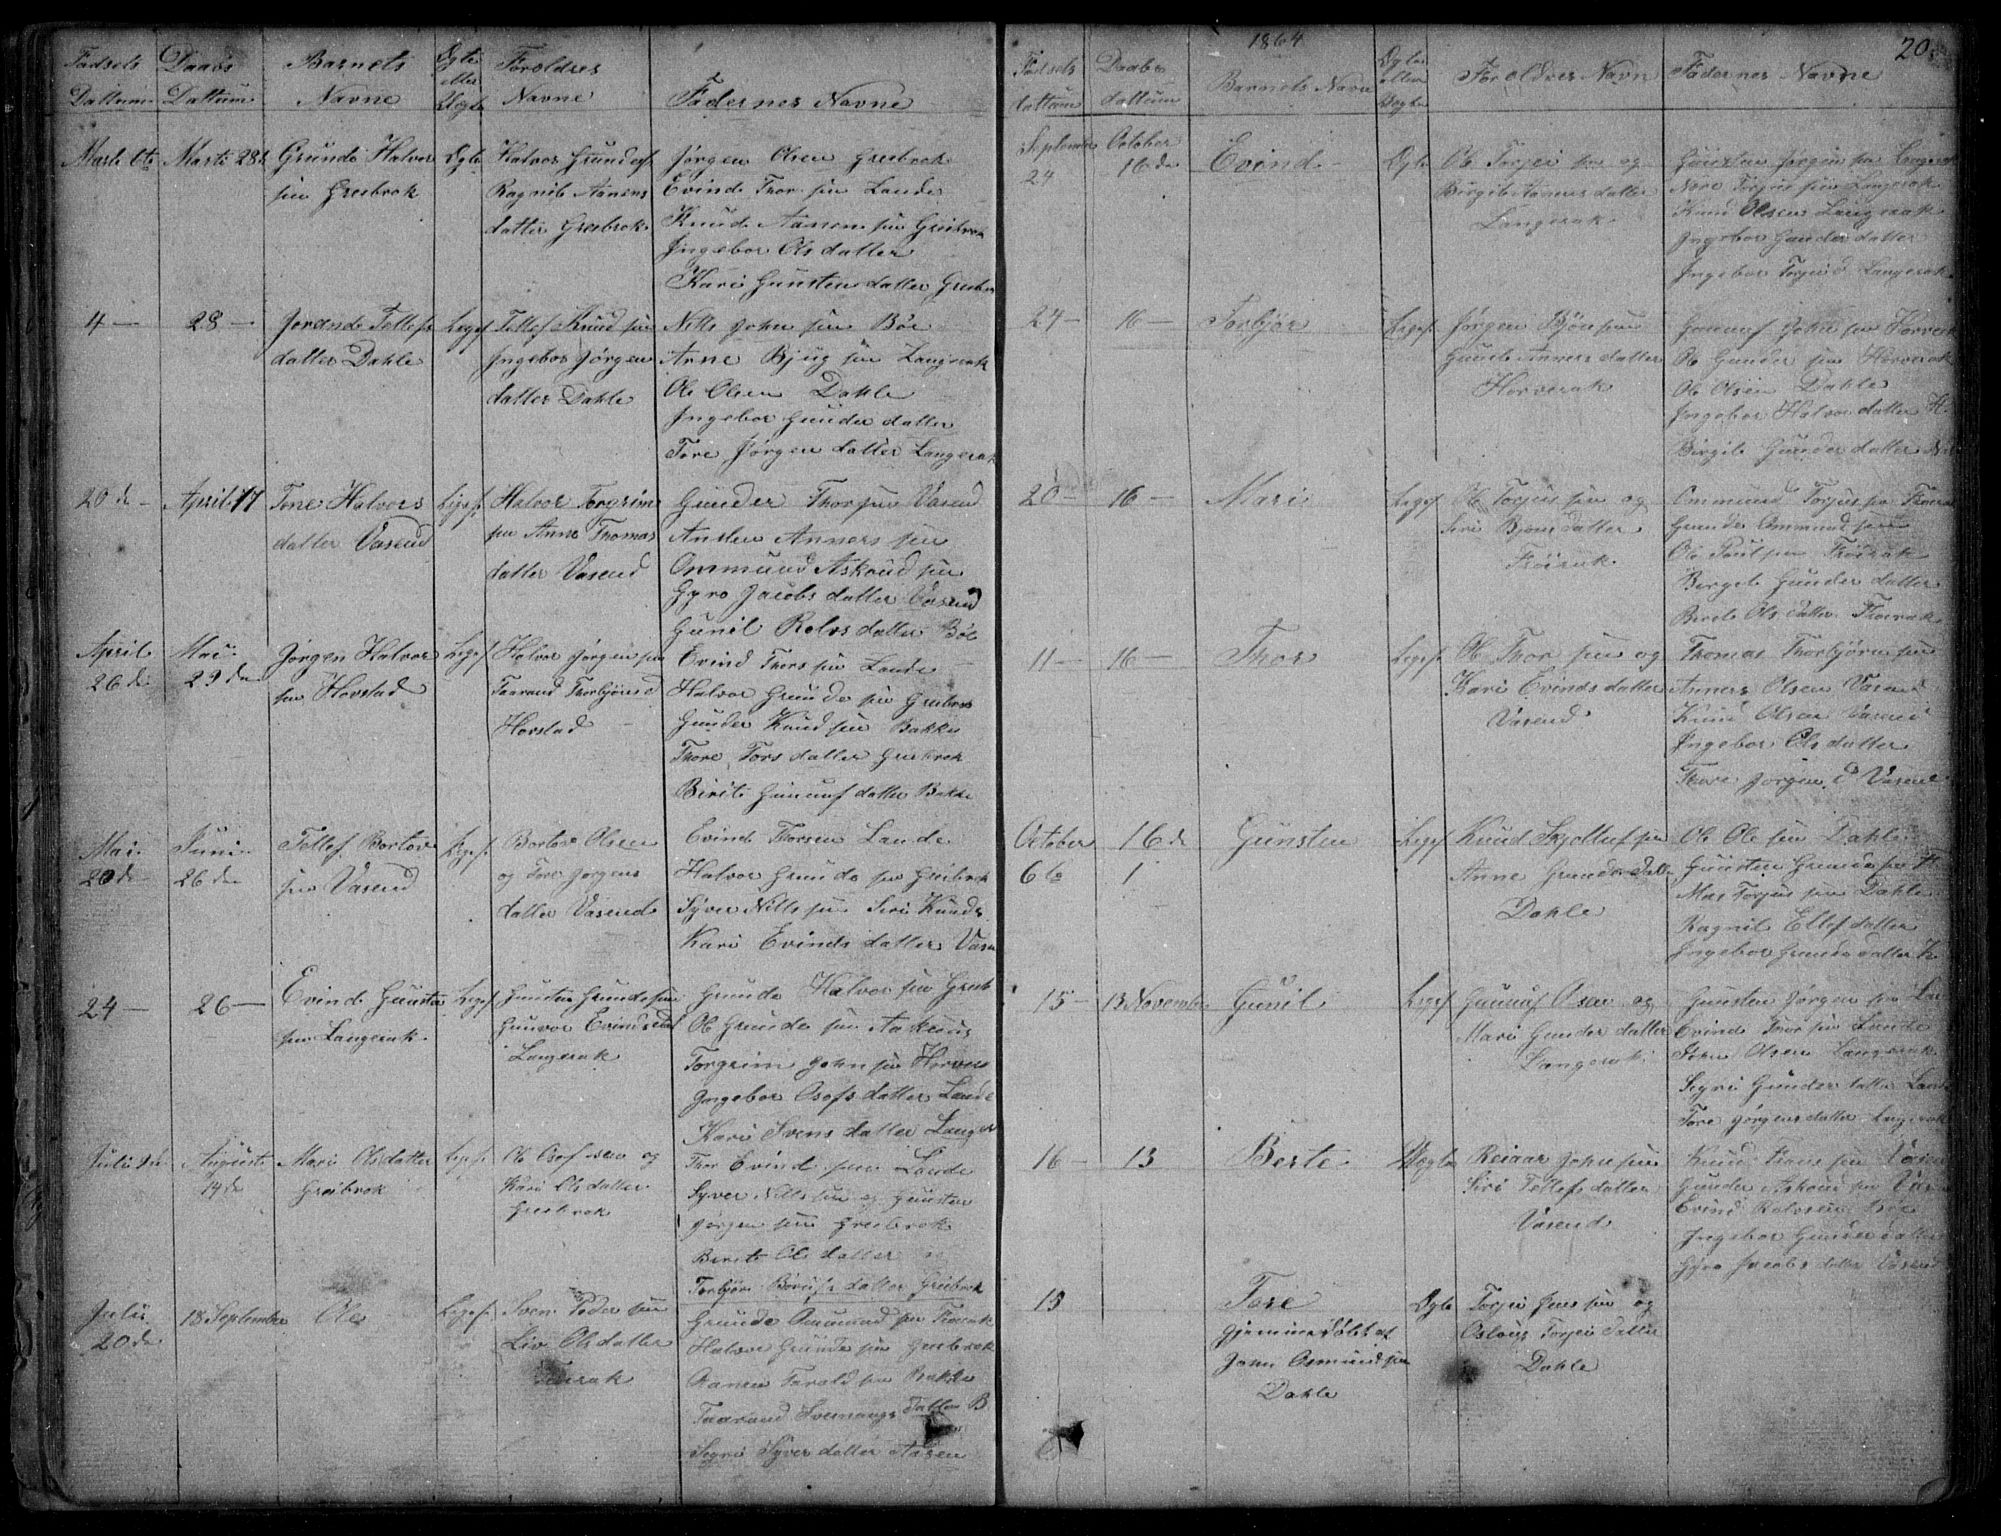 Fødsels Dattum
Daabs Dattum
Barnets Navne
Ægte eller Uegte
Foroldres Navne
Fadernes Navne
Marti 6te
Marti 28d
Grunde Halvor
sen Greibrok
Ægte
Halvor Grundes
Ragnil Aanens
datter Greibrok
Jørgen Olsen Greibrok
Evind Thor sen Lande
Knud Aanen sen Greibrok
Ingebor Olsdatter
Kari Gunsten datter Greibro
4 —
28 —
Jorand Tellefs
datter Dahle
Ligesl
Tellef Knud sen
Ingebor Jørgen
datter Dahle
Nills John sen Bøe
Arne Bjug sen Langerak
Ole Olsen Dahle
Ingebor Gunder datter
Tore Jørgen datter Langerak
20 de —
April 17
Tone Halvors
datter Vasend
Ligesl
Halvor Torgrim
sen Anne Thomas
datter Vasend
Gunder Thor sen Vasend
Ansten Anners sen
Ommund Askoud sen
Gyro Jacobs datter Vasend
Gunil Rolvs datter Bøe
April
26 de
Mai
29 de
Jørgen Halvor
sen Hovstad
Ligesl
Halvor Jørgen sen
Taarand Thorbjørns d
Hovstad
Evind Thors sen Lande
Halvor Grunde sen Greibrok
Gunder Knud sen Bakke
Thore Tors datter Greibrok
Birite Gunuuf datter Bakke
Mai
20 de
Juni
26 de
Tellef Bortov
sen Vasend
Ligesl
Bortov Olsen
og Tore Jørgens
datter Vasend
Evind Thorsen Lande
Halvor Grunde sen Greibrok
Syver Nills sen Siri Knuds
Kari Evinds datter Vasen
24 —
26 —
Evind Gunsten
sen Langerak
Ligesl
Gunsten Grunde sen
Gunvor Evinds dat
Langerak
Grunde Halvor sen Greib
Ole Grunde sen Aaknus
Torgrim John sen Horvera
Ingebor Osofs datter Lande
Kari Svens datter Langer
Juli 9de
August
14 de
Mari Ols datter
Greibrok
Ligesl
Ole Osof sen og
Kari Ols datter
Greibrok
Thor Evind sen Lande
Syver Nills sen og Gunsten
Jørgen sen Greibrok
Berite Ols datter
Torbjør datter Greibrok
Juli
20 de
18 September
Ole
Ligesl
Sven Peder sen
Liv Ols datter
Frøirak
Grunde Aamund sen Frøirak
Halvor Grunde sen Greibrok
Aanen Tarald sen Bakke
Taarand Svenungs datter B
Segri Syver datter Aasen
1864
20
Fødsels dattum
Daabs dattum
Barnets Navn
Ægte eller Uægte
Foroldres Navn
Fadernes Navne
September
24
October
16 de
Evind
Ægte
Ole Torjei sen og
Birgit Aanens datter
Langerak
Gunsten Jørgen sen Langerak
Nere Torjus sen Langerak
Knud Olsen Langerak
Ingebor Gunder datter
Ingebor Torjei d Langerak
24 —
16 —
Torbjør
Ligesl
Jørgen Bjøn sen
Gunil Anners datter
Horverak
Gunnuf John sen Horverak
Ole Gunder sen Horverak
Ole Olsen Dahle
Ingebor Halvor datter H.
Birgit Gunder datter
20 —
16 —
Mari
Ligesl
Ole Torjus sen og
Siri Bjøns datter
Frøirak
Ommund Torjus sen Frøirak
Grunde Ommund sen
Ole Paul sen Frøirak
Bergit Gunder datter
Berit Ols datter Frøirak
11 —
16 —
Thor
Ligesl
Ole Thor sen og
Kari Evinds datter
Vasend
Thomas Thorbjørn sen
Anners Olsen Vasend
Knud Olsen Vasend
Ingebor Ols datter
Thore Jørgen d Vasend
October
6te
16 de
1
Gunsten
Ligesl
Knud Skjolluf sen
Anne Grunde dat
Dahle
Ole Ole sen Dahle
Gunsten Grunde sen
Mas Torjus sen Dahle
Ragnil Ellef datter
Ingebor Grunde datter
15 —
13 November
Gunil
Ligesl
Gunnuf Osen og
Mari Gunder datter
Langerak
Gunsten Jørgen sen Lan
Evind Thor sen Lande
John Olsen Langerak
Segri Gunder datter Lande
Tore Jørgens datter Langerak
16 —
13
Berte
Uægte
Reiaar John sen
Siri Tellefs datter
Vasend
Knud sen
Gunder Askoud sen Vas
Evind Rolvsen Bøe
Ingebor Gunder datter
Gjøro Jacobs datter Vasend
15
Tore
Hjemmedøbt af
John Osmund sen
Dahle
Ægte
Torjei Jens sen og
Oslaug Torjei datter
Dahle